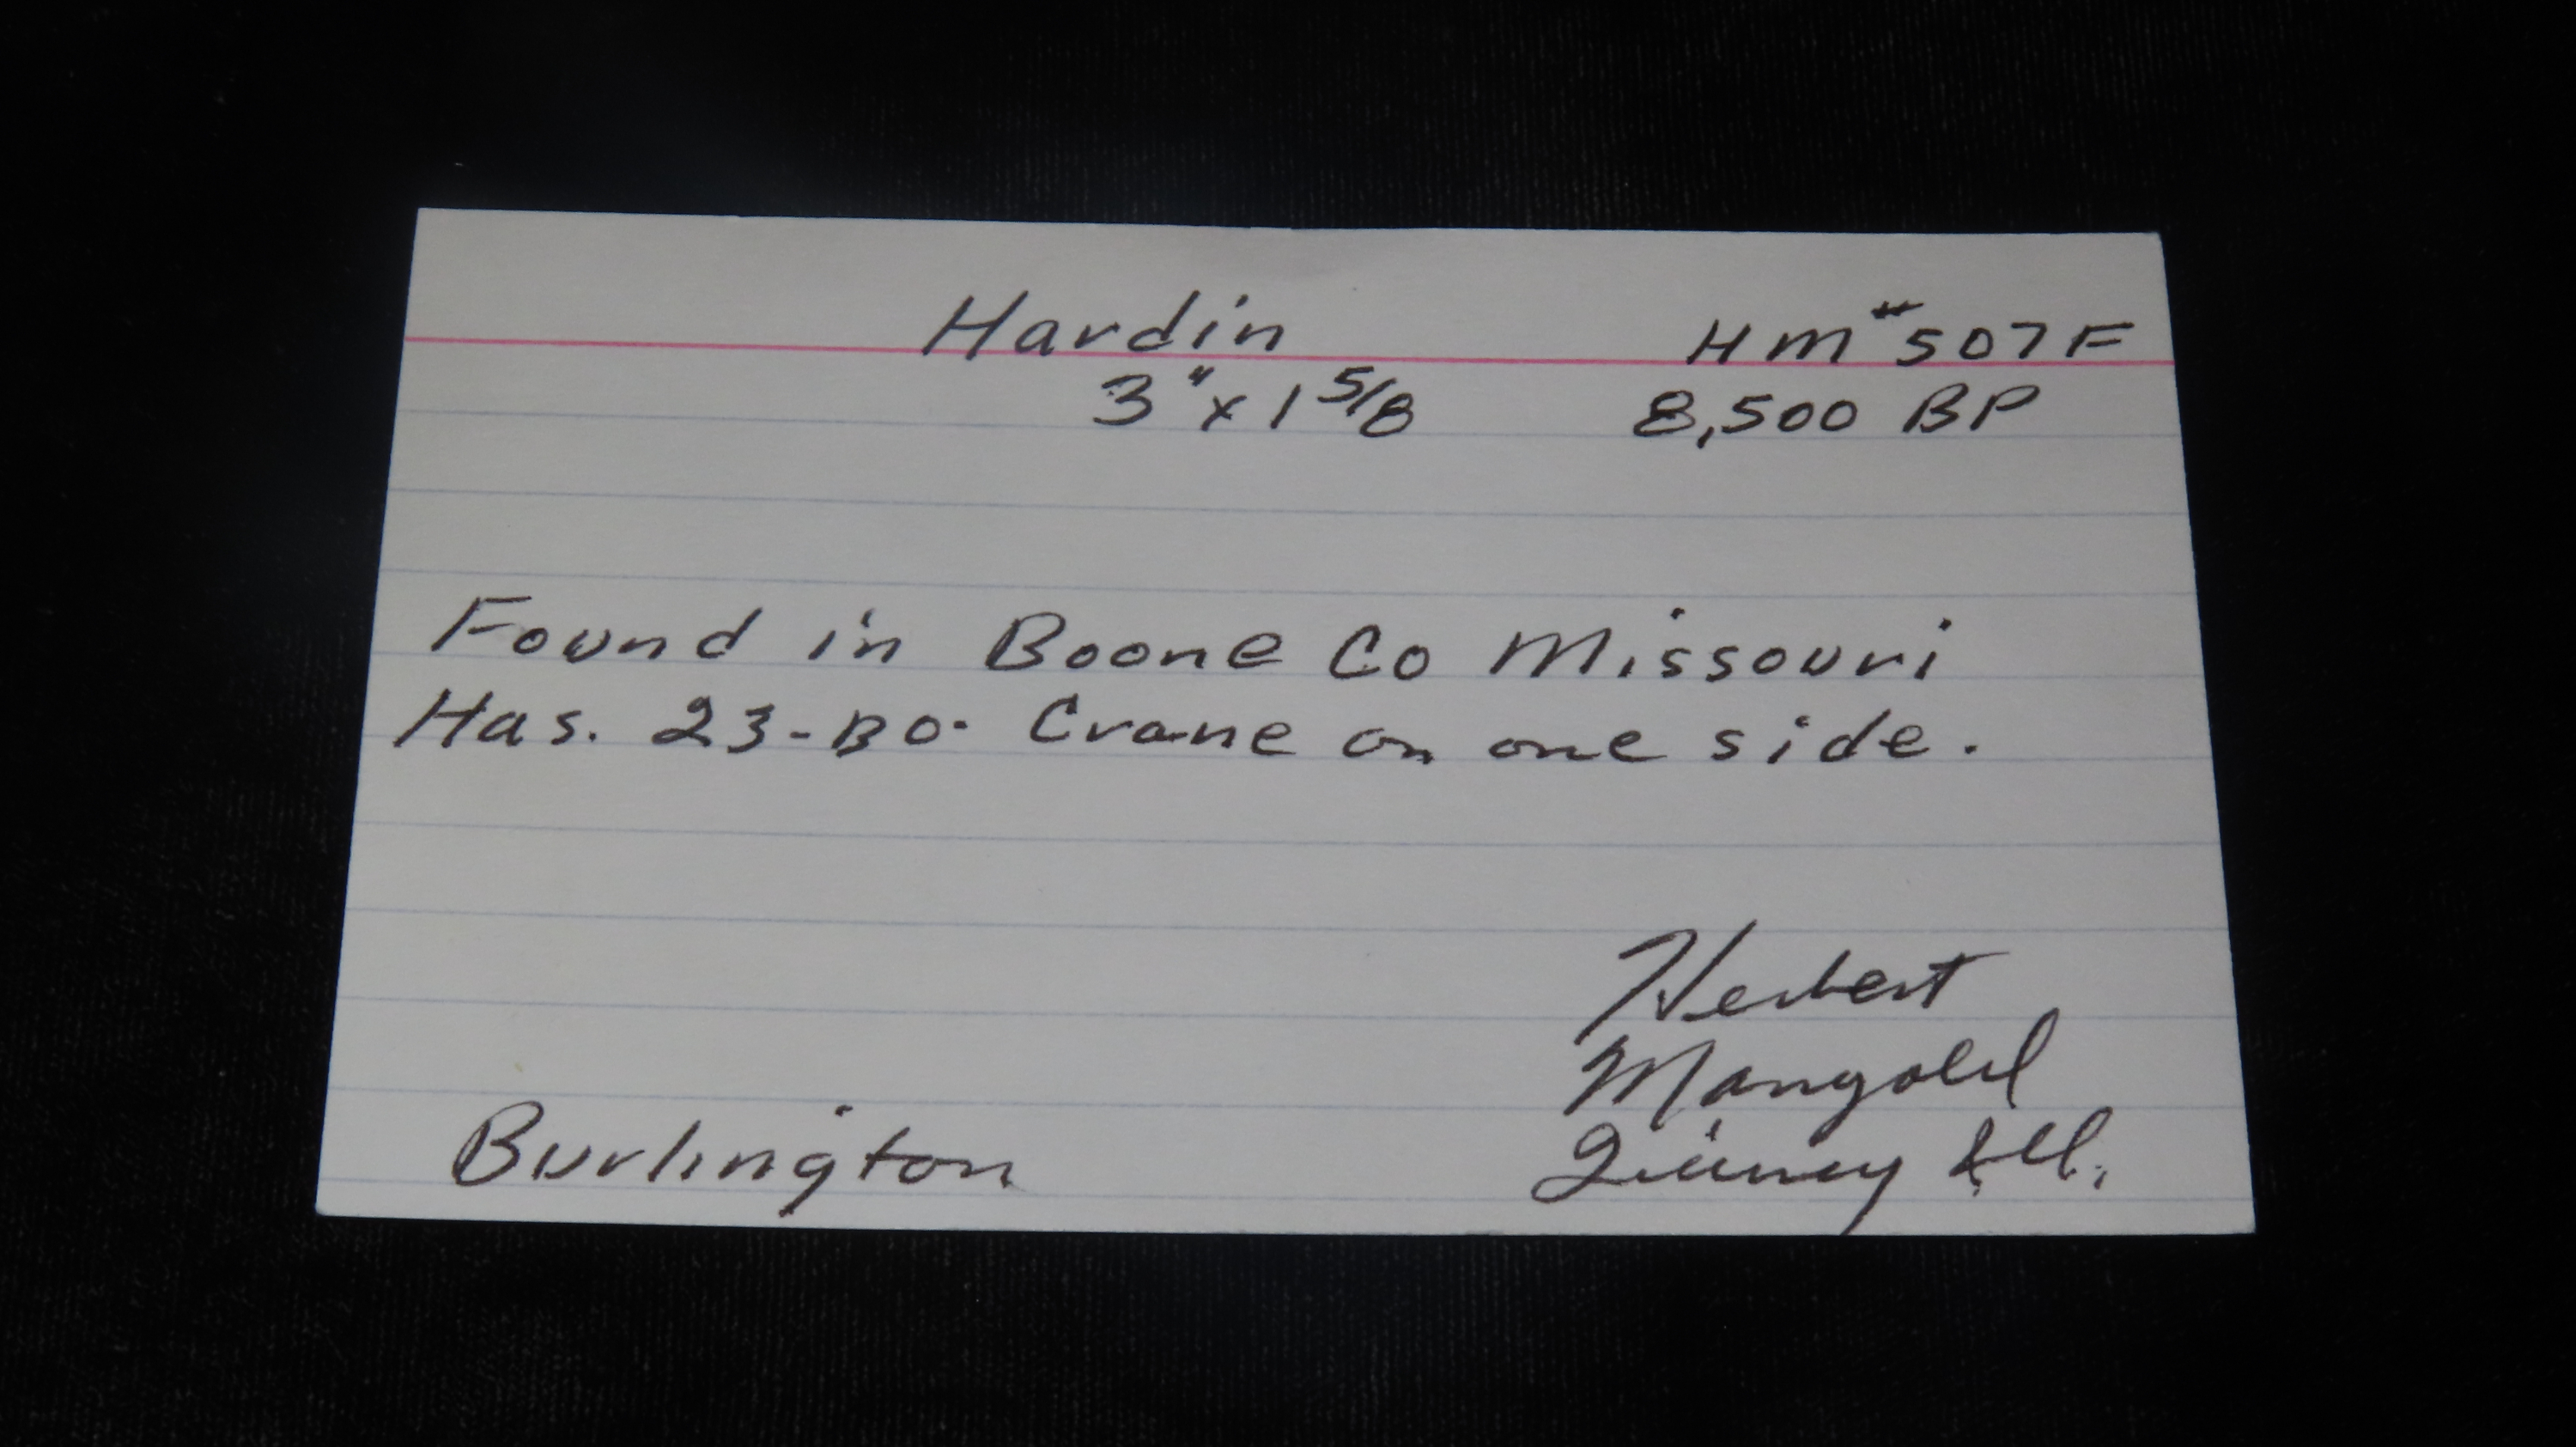 Hardin HM#507F
3"x 1 5/8 8,500 BP
Found in Boone Co Missouri
Has. 23-BO- Crane on one side.
Herbert
Mangold
Quincy Ill.
Burlington